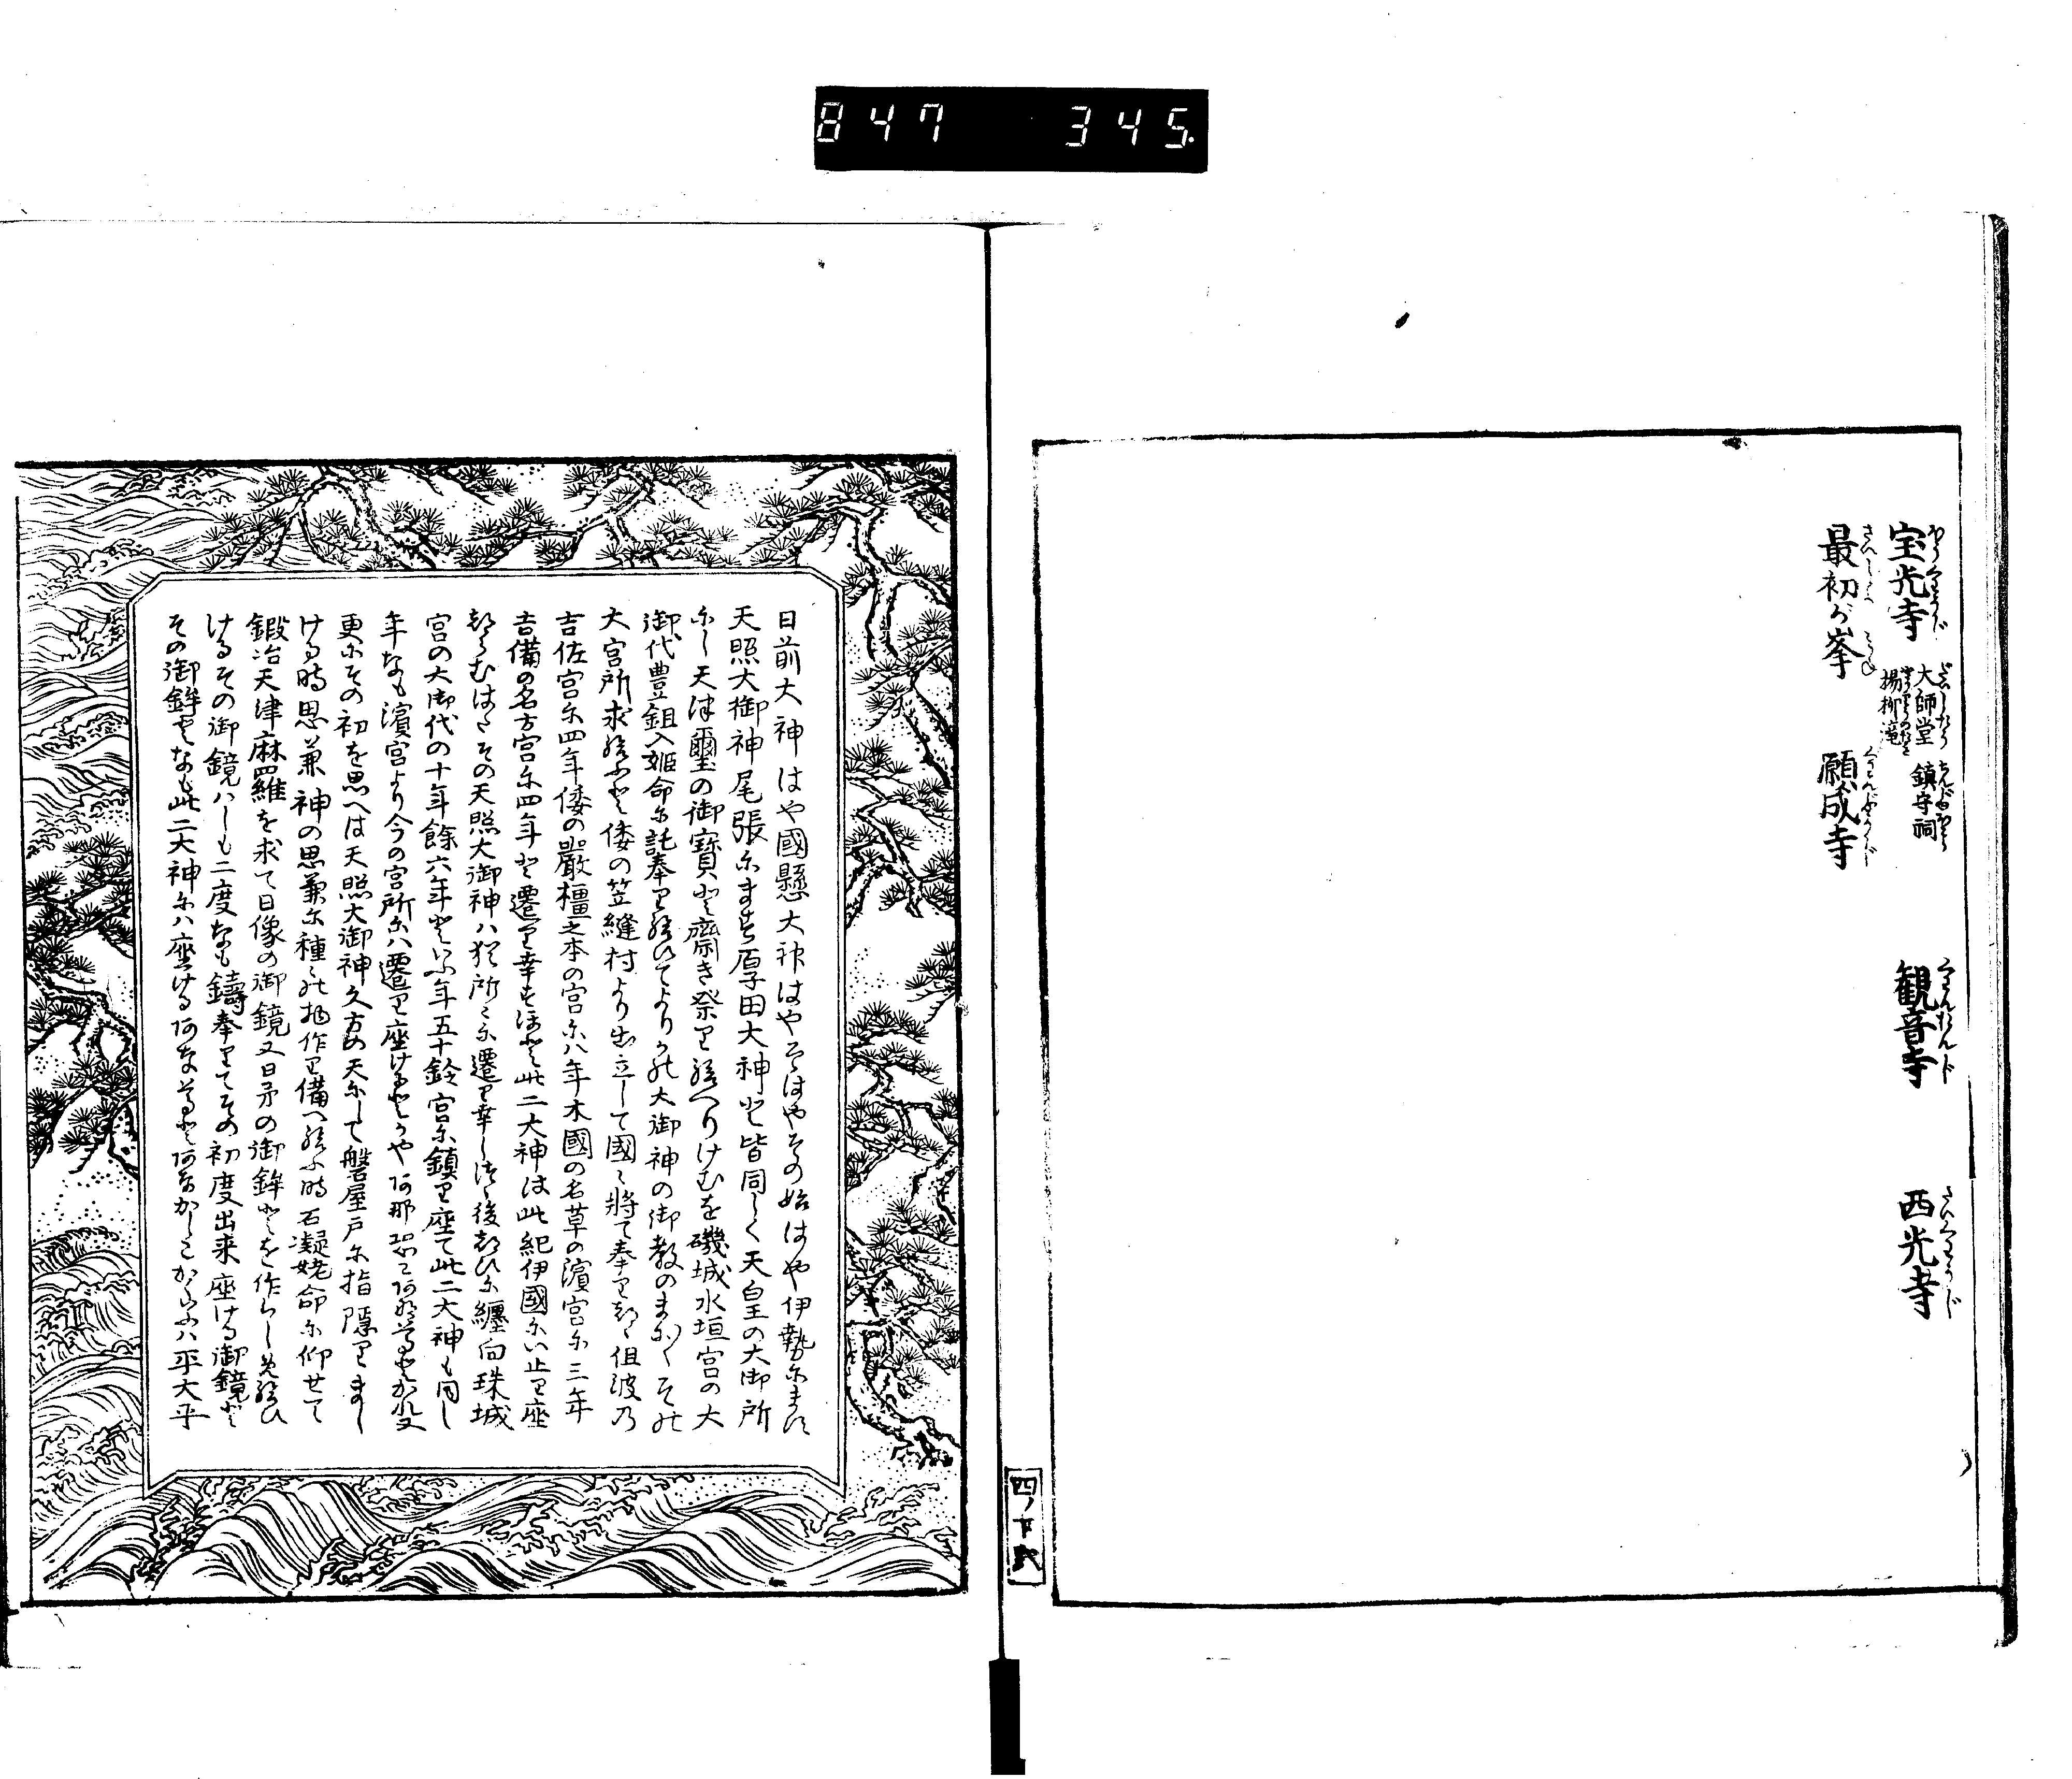 847 345
宝光寺 大師堂 鎮守祠 観音寺 西光寺
楊柳滝
最初が峯 願成寺
四ノ下
日前大神はや國懸大神はやそはやその始はや伊勢尓ます
天照大御神尾張尓ます厚田大神と皆同しく天皇の大御所
尓し天津璽の御寶と齋き祭り給へりけむを磯城水垣宮の大
御代豊鉏入姫命尓託奉り給ひてよりかの大御神の御教のまにまにその
大宮所求給ふと倭の笠縫村より出立して國々將て奉り 但波乃
吉佐宮尓四年倭の嚴橿之本の宮尓八年木國の名草の濱宮尓三年
吉備の名方宮尓四年と遷り幸すほと此二大神は此紀伊國尓止り座
その天照大御神ハ猶所々尓遷り幸し 後 纏向珠城
宮の大御代の十年餘六年といふ年五十鈴宮尓鎮り座て此二大神も同し
年なも濱宮より今の宮所尓ハ遷り座ける
更尓その初を思へは天照大御神久方の天尓して磐屋戸尓指隠りまし
ける時思兼神の思兼尓種々の物作り備へ給ふ時石凝姥命尓仰せて
鍛冶天津麻羅を求て日像の御鏡又日矛の御鉾とを作らしめ給ひ
けるその御鏡ハしも二度なも鑄奉りてその初度出来座ける御鏡と
その御鉾となも此二大神尓ハ座ける